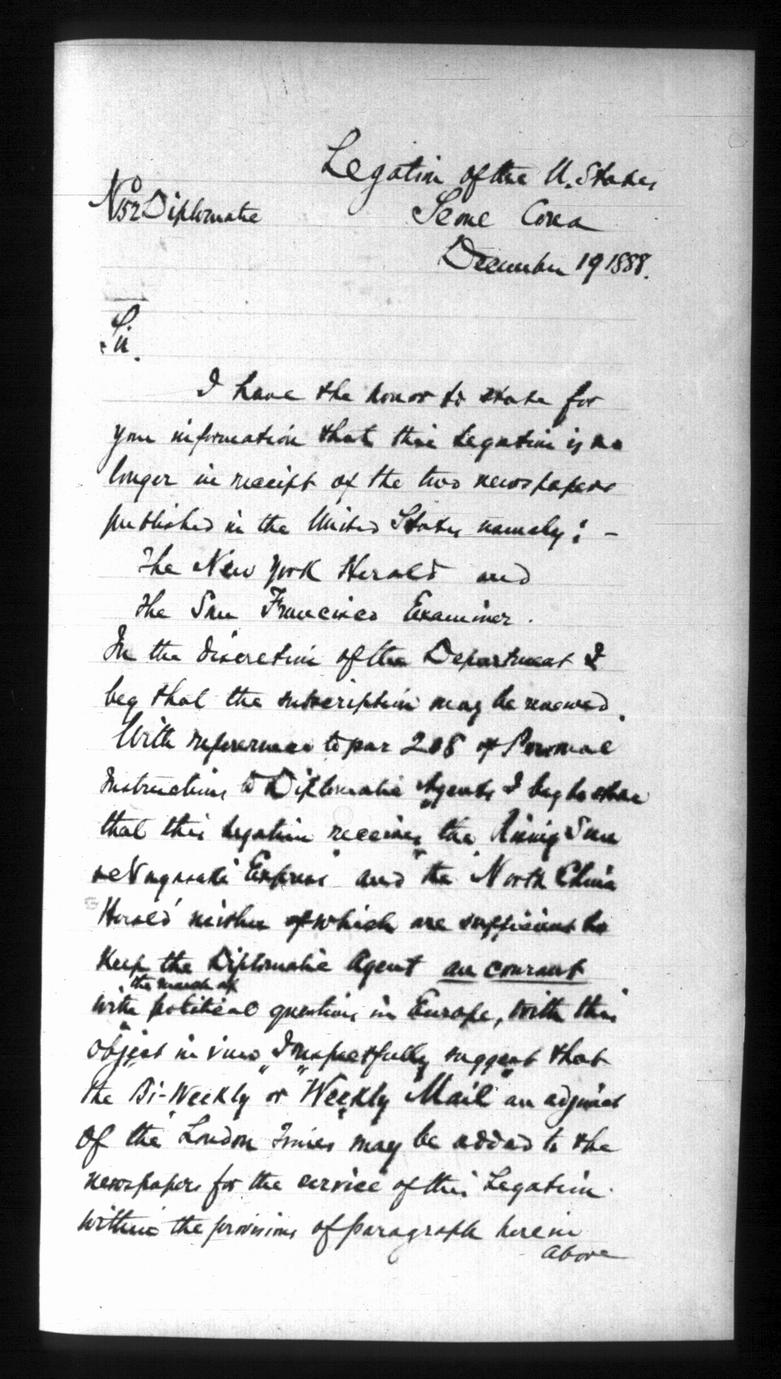 Legation of the U. States
No 52 Diplomatic
Seoul Corea
December 19 1888.
Sir.
I have the honor to state for
your information that this Legation is no
longer in receipt of the two newspapers
published in the United States namely: -
The New York Herald and
the San Francisco Examiner.
In the discretion of the Department I
beg that the subscription may be renewed.
With reference to par 208 of Personal
Instructions to Diplomatic Agents I beg to state
that this Legation receives the "Rising Sun
Nagasaki Express" and "the North China
Herald" neither of which are sufficient to
keep the Diplomatic Agent au courant
with the march of political questions in Europe, with this
object in view I respectfully suggest that
the "Bi-Weekly" or "Weekly Mail" an adjunct
of the London Times may be added to the
newspapers for the service of this Legation
within the provisions of paragraph herein
above